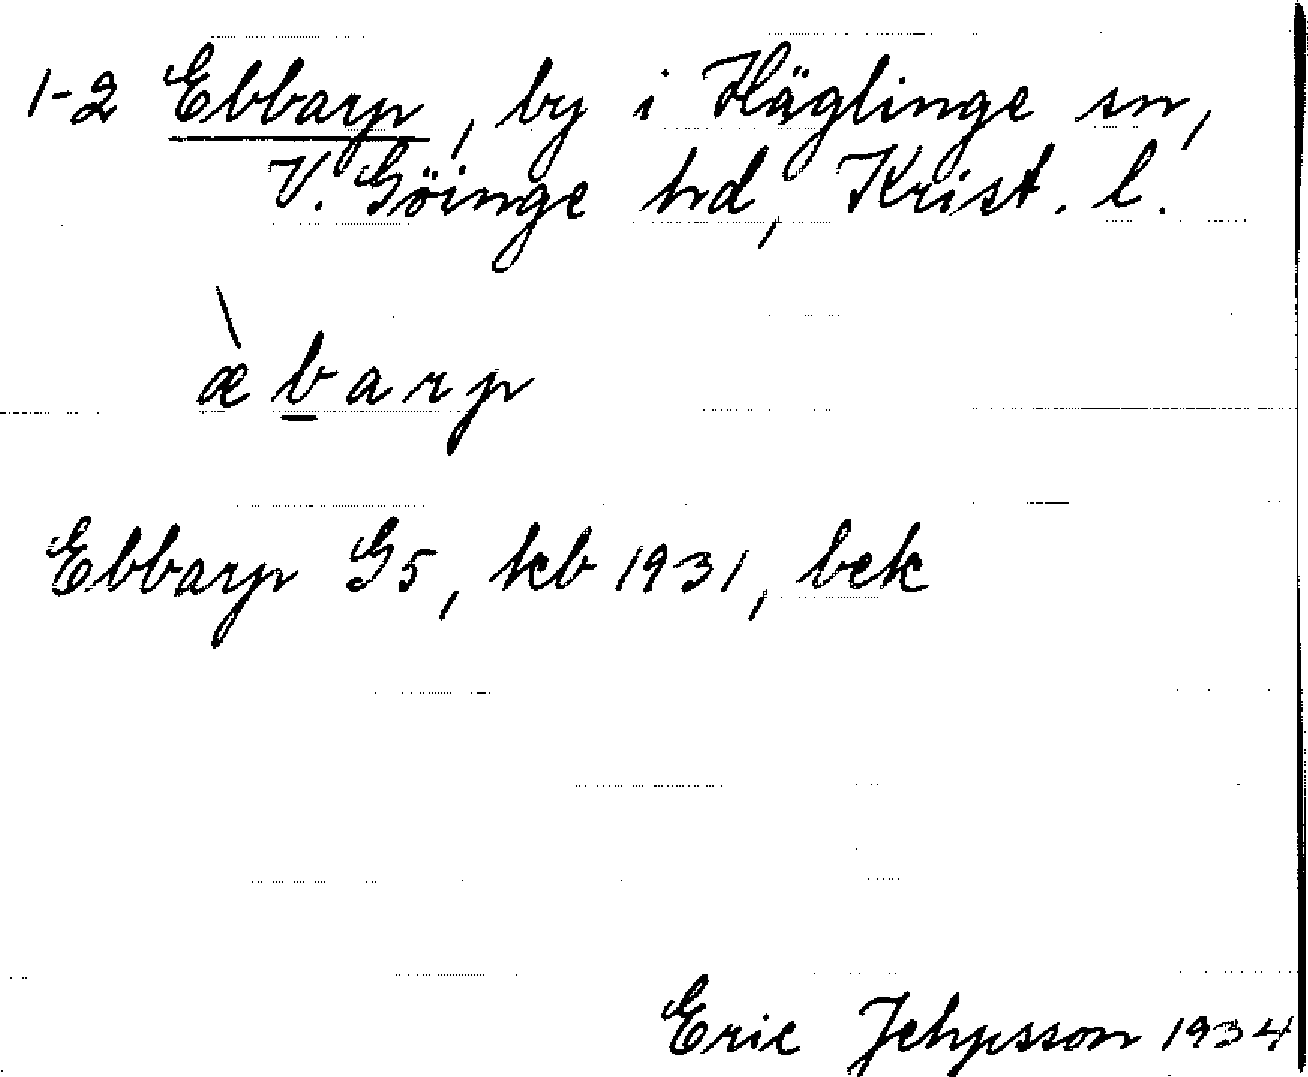 1-2 Ebbarp, by i Häglinge sn,
V. Göinge hd, Krist. l.
æ̀b̲arp
Ebbarp G5, kb 1931, bek
Eric Jehpsson 1934